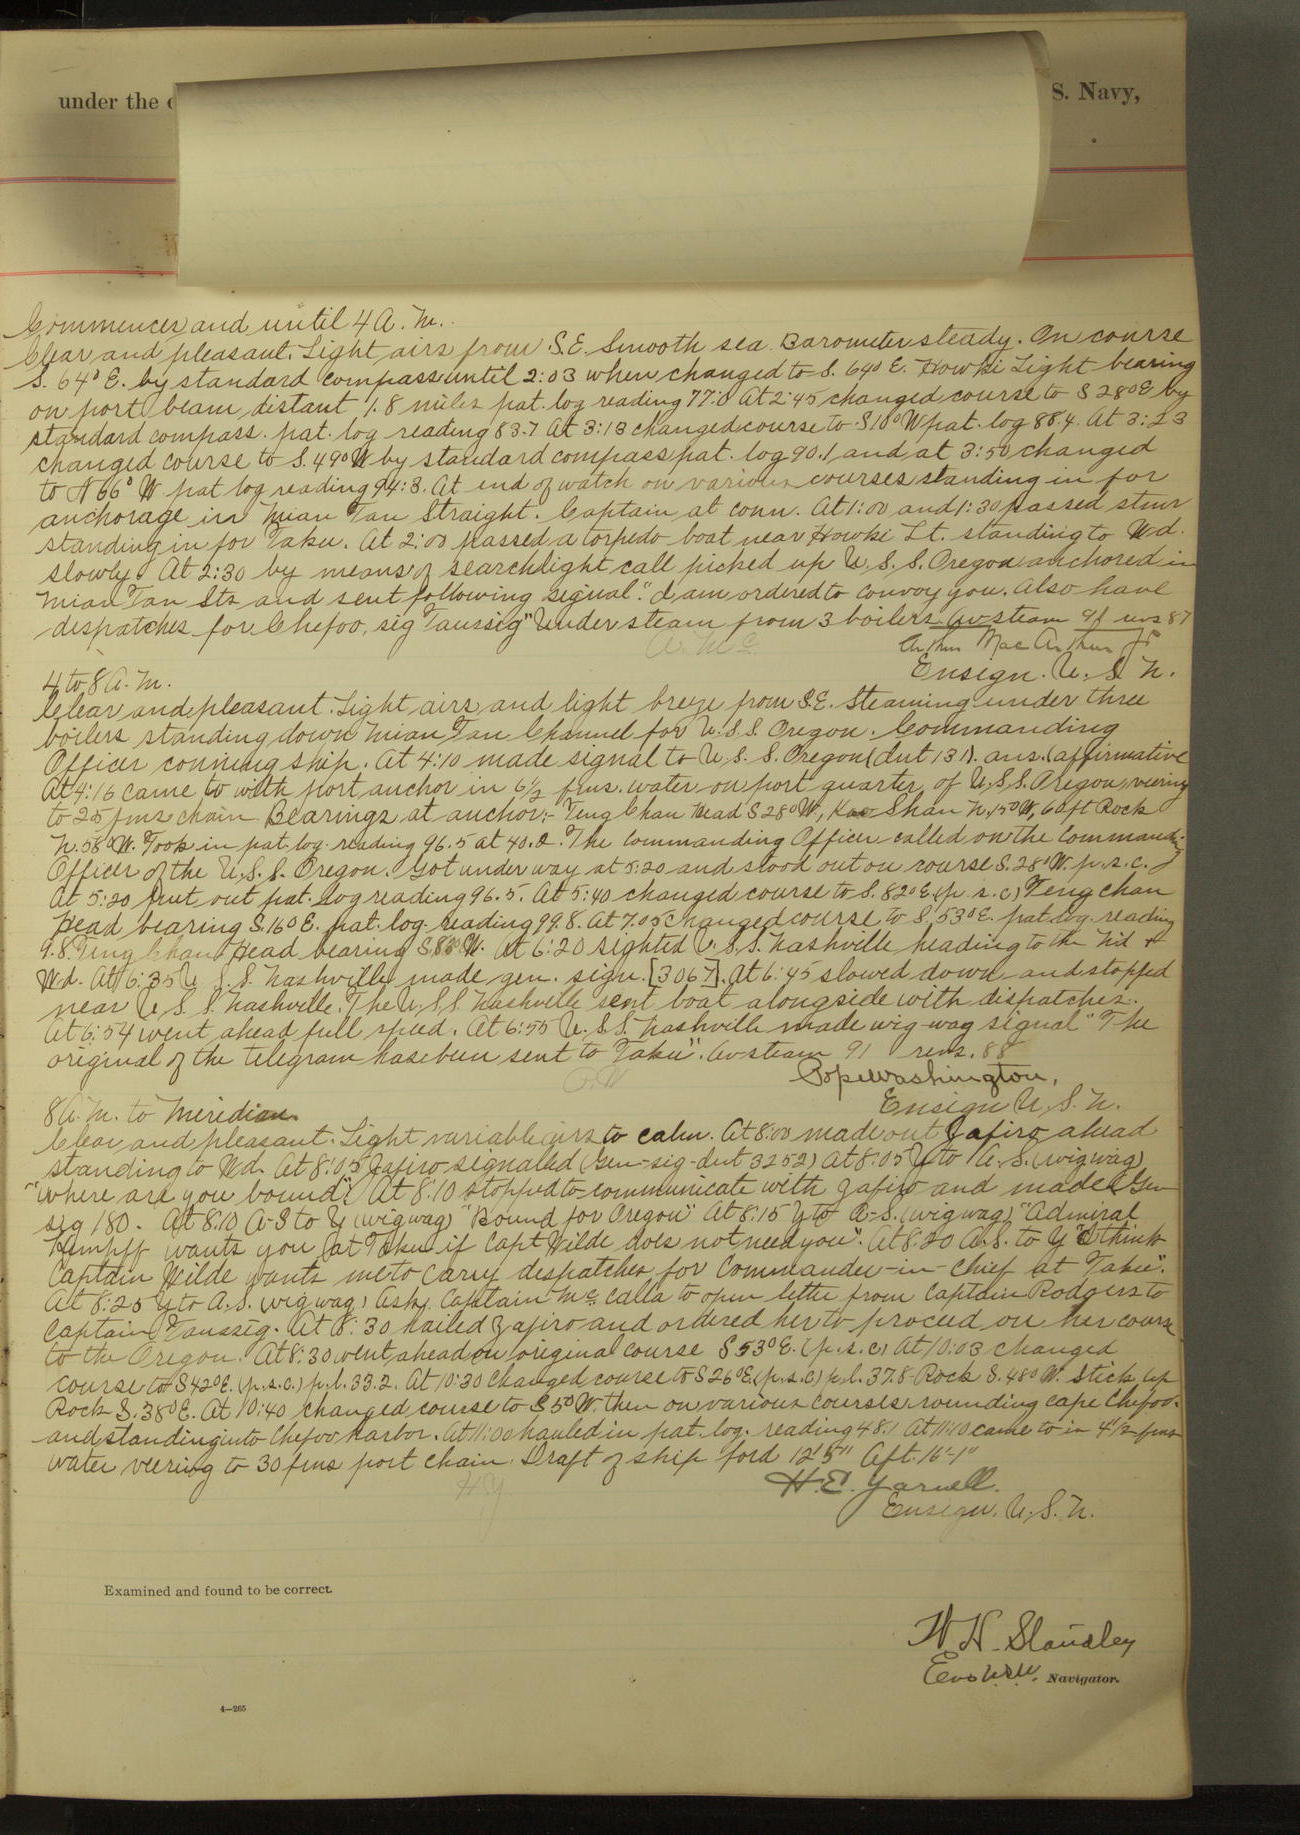 under the
S. Navy,
Commences and until 4 A. M.
Clear and pleasant. Light airs from S.E. Smooth sea. Barometer steady. On course
S. 64° E. by standard compass until 2:03 when changed to S. 64° E. Howki Light bearing
on port beam, distant 1.8 miles pat. log reading 77.0 At 2:45 changed course to S 28° E by
standard compass. pat. log reading 83.7 At 3:13 changed course to S 10° W pat. log 88.4. At 3:23
changed course to S. 49° W by standard compass pat. log 90.1 and at 3:50 changed
to N 66° W pat log reading 94:3. At end of watch on various courses standing in for
anchorage in Mian Tan Straight. Captain at conn. At 1:00 and 1:30 passed stmr
standing in for Taku. At 2:00 passed a torpedo boat near Howki Lt. standing to Wd.
slowly. At 2:30 by means of searchlight call picked up U. S. S. Oregon anchored in
Mian Tan Sts and sent following signal: "I am ordered to convoy you. Also have
dispatches for Chefoo, sig Taussig" Under steam from 3 boilers Av steam 91 revs 87
A. McA
Arthur MacArthur Jr
Ensign. U. S. N.
4 to 8 A. M.
Clear and pleasant. Light airs and light breze from S.E. Steaming under three
boilers standing down Mian Tan Channel for U.S.S. Oregon. Commanding
Officer conning ship. At 4:10 made signal to U. S. S. Oregon (dut 131). ans. (affirmative
At 4:16 came to with port anchor in 6½ fms. water on port quarter of U.S.S. Oregon, veering
to 25 fms chain Bearings at anchor:- Teng Chan Head S 28° W, Kao Shan N. 15° W, 60 ft Rock
N. 58° W. Took in pat. log. reading 96.5 at 40.2. The Commanding Officer called on the Commanding
Officer of the U.S.S. Oregon. Got under way at 5:20 and stood out on course S. 28° W. p.s.c.
At 5:20 put out pat. log reading 96.5. At 5:40 changed course to S. 82° E. (p. s. c) Teng chan
Head bearing S. 16° E. pat. log. reading 99.8. At 7.05 changed course to S. 53° E. pat. log. reading
9.8. Teng Chan Head bearing S. W. At 6:20 sighted U. S. S. Nashville heading to the Nd &
Wd. At 6:35 U. S. S. Nashville made gen. sign. [3067]. At 6:45 slowed down and stopped
near U. S. S. Nashville. The U. S. S. Nashville sent boat alongside with dispatches.
At 6:54 went ahead full speed. At 6:55 U. S. S. Nashville made wig-wag signal "The
original of the telegram has been sent to Taku". Av steam 91 revs. 88
P.W
Pope Washington,
Ensign U. S. N.
8 A. M. to Meridian
Clear and pleasant. Light variable airs to calm. At 8:00 made out Zafiro ahead
standing to Wd. At 8:05 Zafiro signalled (Gen-sig-dut 3252) At 8:05 Y to A.S. (wigwag)
"where are you bound". At 8:10 stopped to communicate with Zafiro and made Gen
sig 180. At 8:10 A-S to Y (wigwag) "Bound for Oregon" At 8:15 Y to A-S. (wigwag) "Admiral
Kempff wants you at Taku if Capt Wilde does not need you". At 8:20 A.S. to Y "I think
Captain Wilde wants me to carry dispatches for Commander-in-Chief at Taku".
At 8:25 Y to A.S. (wigwag) Ask Captain McCalla to open letter from Captain Rodgers to
Captain Taussig. At 8:30 hailed Zafiro and ordered her to proceed on her course
to the Oregon. At 8:30 went ahead on original course S 53° E. (p.s.c) At 10:03 changed
course to S 42° E. (p.s.c.) p.l. 33.2. At 10:30 changed course to S 26° E. (p.s.c) p.l. 37.8 Rock S. 48° W. Stick up
Rock S. 38° E. At 10:40 changed course to S 5° W. then on various courses rounding cape Chefoo.
and standing into Chefoo harbor. At 11:00 hauled in pat. log. reading 48.1 At 11:10 came to in 4½ fms
water veering to 30 fms port chain. Draft of ship ford 12'5" Aft. 16'-1"
HY
H. E. Yarnell.
Ensign. U. S. N.
Examined and found to be correct.
W H Standley
Ens U.S.N. Navigator.
4—265